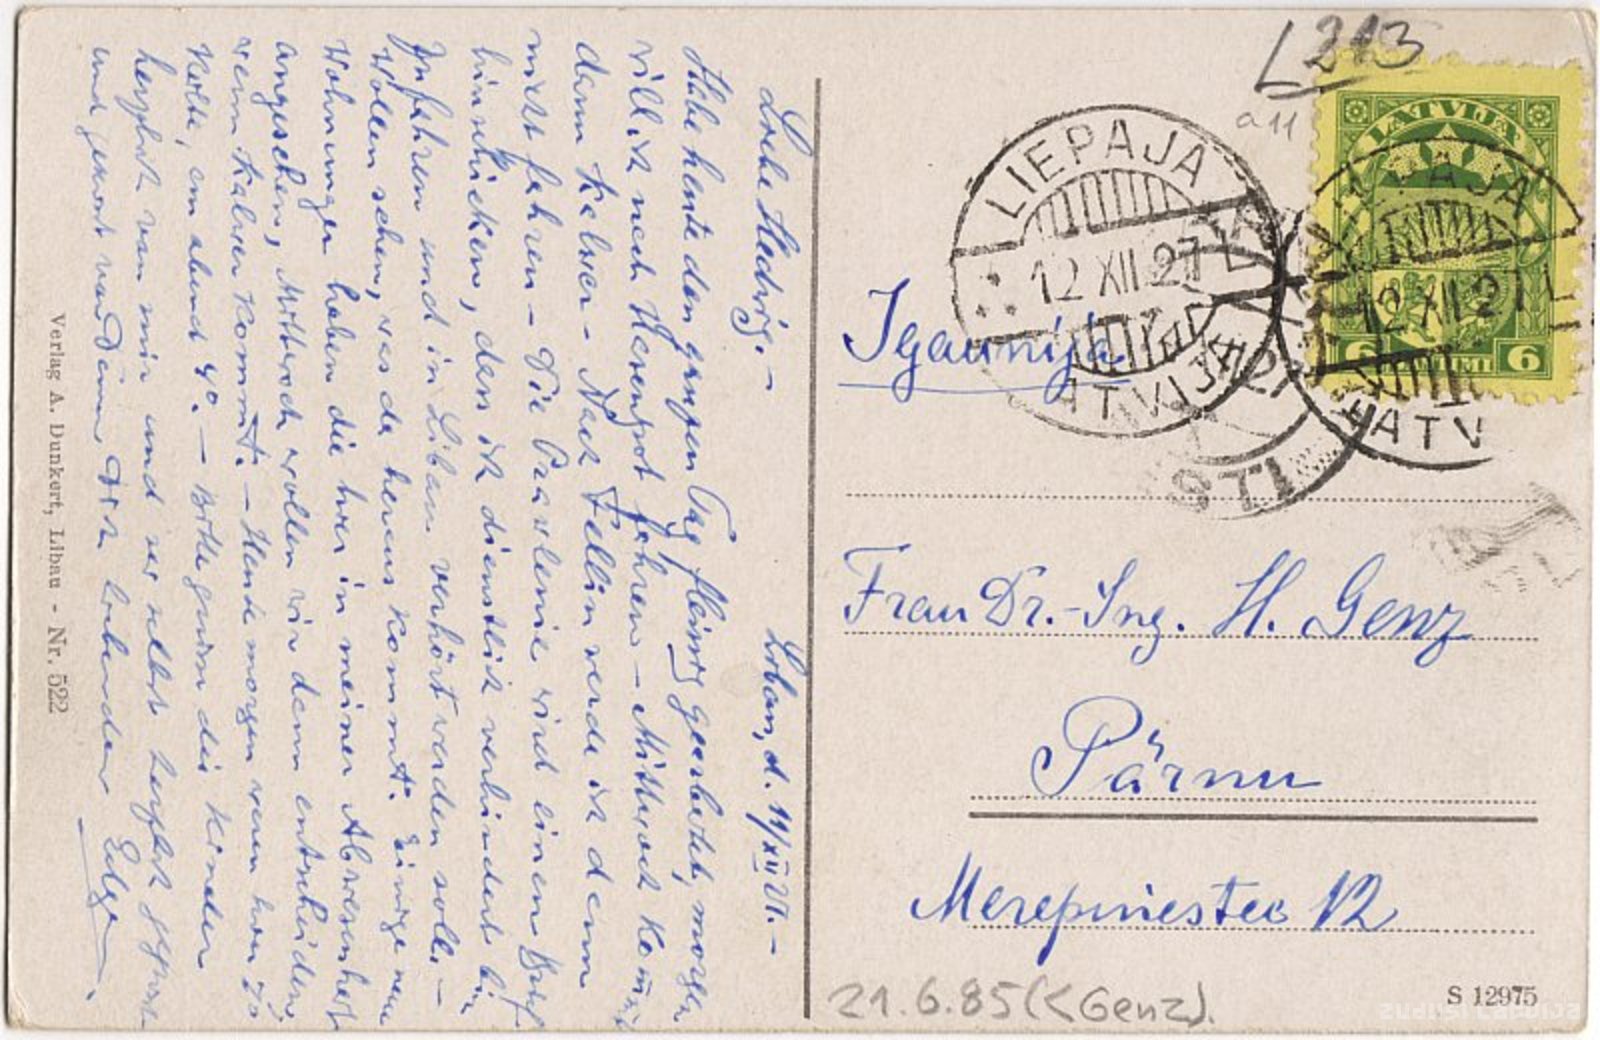 Liebe Hedwig. –
Libau, d. 11/XII 27. –
Habe heute den ganzen Tag fleissig gearbeitet, morgen
will ich nach Hasenpot fahren – Mittwoch kommt
dann Kalwer – Nach Fellin werde ich dann
nicht fahren – Die wird einen Brief
hinschicken, dass ich dienstlich verhindert bin
zu fahren und in Libau verhört werden soll. –
Wollen sehen, was da heraus kommt. Einige neue
Wohnungen haben die hier in meiner Abwesenheit
angesehen, Mittwoch wollen wir dann entscheiden,
wenn Kalwer kommt. – Heute morgen waren hier 7°
Kälte, am abend 4°. – Bitte die Kinder
herzlich von mir und sei selbst herzlich gegrüsst
und geküsst von Deinem Dich liebenden
Verlag A. Dunkert, Libau - Nr. 522
L 213
a 11
LATVIJA
6 6
LIEPAJA
12 XII 27
LATVIJA
LIEPAJA
12 XII 27
LATV
Igaunija
Frau Dr.-Ing. H. Genz
Pärnu
Merepuiestee 12
21.6.85 (< Genz).
S 12975
zudusi Latvija